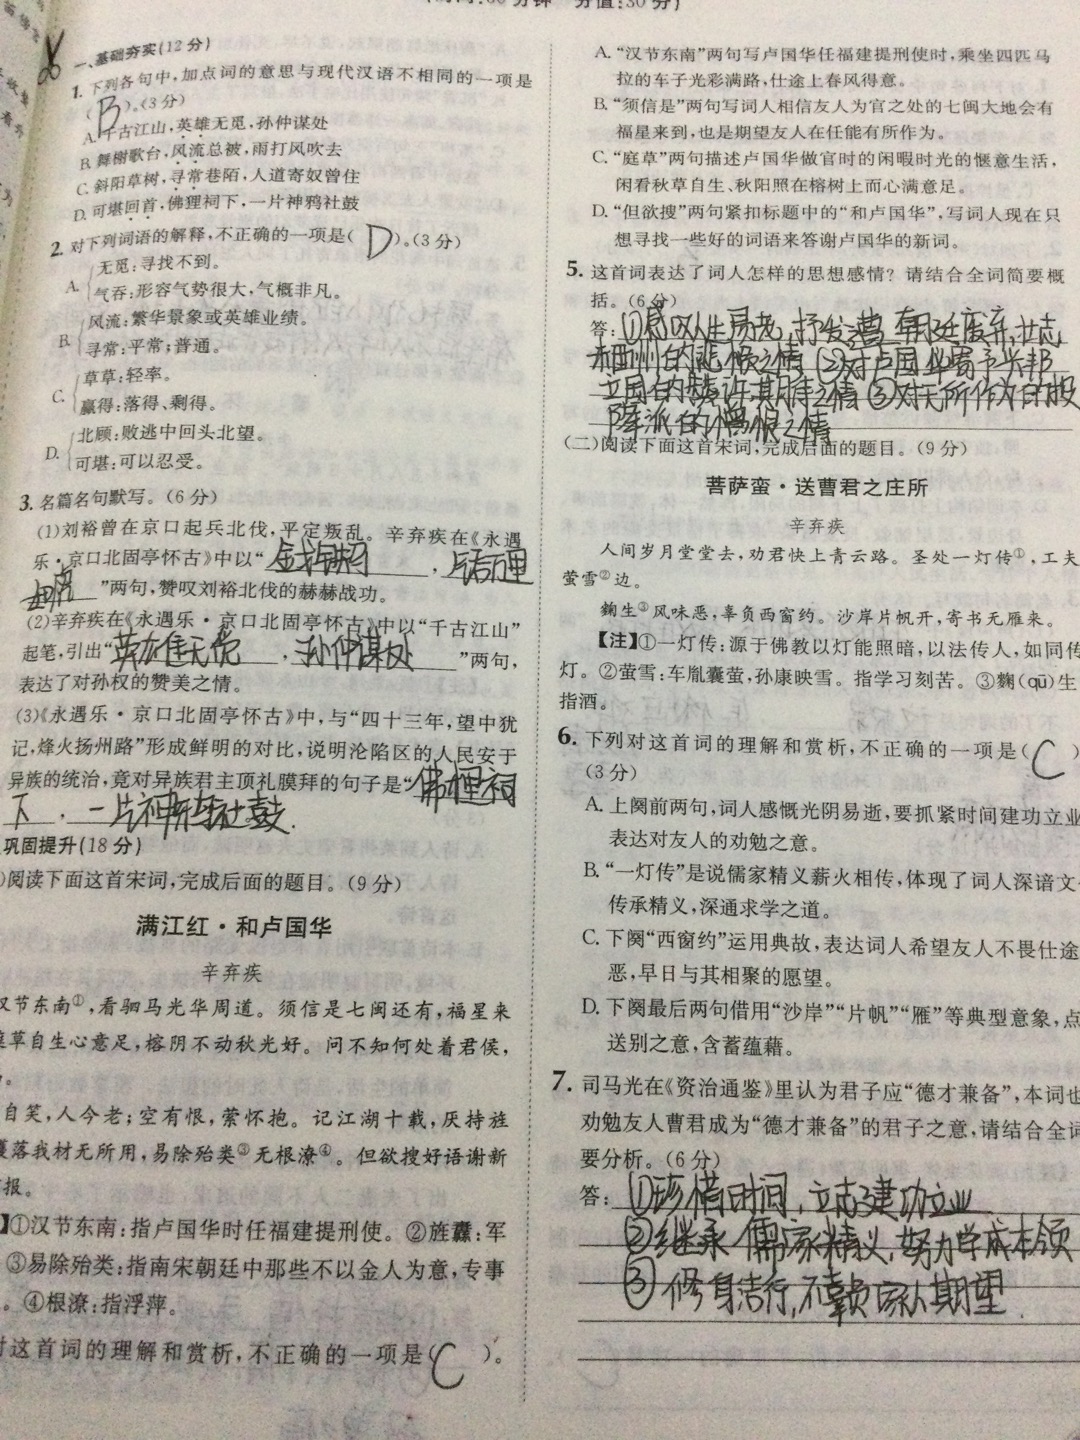 一、基础夯实(12分)
1. 下列各句中,加点词的意思与现代汉语不相同的一项是
( B )。(3分)
A. 千古江山,英雄无觅,孙仲谋处
B. 舞榭歌台,风流总被,雨打风吹去
C. 斜阳草树,寻常巷陌,人道寄奴曾住
D. 可堪回首,佛狸祠下,一片神鸦社鼓
2. 对下列词语的解释,不正确的一项是( D )。(3分)
A. 无觅:寻找不到。
气吞:形容气势很大,气概非凡。
B. 风流:繁华景象或英雄业绩。
寻常:平常;普通。
C. 草草:轻率。
赢得:落得、剩得。
D. 北顾:败逃中回头北望。
可堪:可以忍受。
3. 名篇名句默写。(6分)
(1)刘裕曾在京口起兵北伐,平定叛乱。辛弃疾在《永遇
乐·京口北固亭怀古》中以“金戈铁马,气吞万里
如虎”两句,赞叹刘裕北伐的赫赫战功。
(2)辛弃疾在《永遇乐·京口北固亭怀古》中以“千古江山”
起笔,引出“英雄无觅,孙仲谋处”两句,
表达了对孙权的赞美之情。
(3)《永遇乐·京口北固亭怀古》中,与“四十三年,望中犹
记,烽火扬州路”形成鲜明的对比,说明沦陷区的人民安于
异族的统治,竟对异族君主顶礼膜拜的句子是“佛狸祠
下,一片神鸦社鼓.
巩固提升(18分)
)阅读下面这首宋词,完成后面的题目。(9分)
满江红·和卢国华
辛弃疾
汉节东南①,看驷马光华周道。须信是七闽还有,福星来
草自生心意足,榕阴不动秋光好。问不知何处着君侯,
自笑,人今老;空有恨,萦怀抱。记江湖十载,厌持旌
落我材无所用,易除殆类③无根潦④。但欲搜好语谢新
报。
】①汉节东南:指卢国华时任福建提刑使。②旌纛:军
③易除殆类:指南宋朝廷中那些不以金人为意,专事
。④根潦:指浮萍。
对这首词的理解和赏析,不正确的一项是( C )。
A. “汉节东南”两句写卢国华任福建提刑使时,乘坐四匹马
拉的车子光彩满路,仕途上春风得意。
B. “须信是”两句写词人相信友人为官之处的七闽大地会有
福星来到,也是期望友人在任能有所作为。
C. “庭草”两句描述卢国华做官时的闲暇时光的惬意生活,
闲看秋草自生、秋阳照在榕树上而心满意足。
D. “但欲搜”两句紧扣标题中的“和卢国华”,写词人现在只
想寻找一些好的词语来答谢卢国华的新词。
5. 这首词表达了词人怎样的思想感情?请结合全词简要概
括。(6分)
答:①感叹人生易老,抒发遭朝廷废弃,壮志
未酬的悲恨之情 ②对卢国华寄予兴邦
立国的赞许期待之情 ③对无所作为的投
降派的愤恨之情
(二)阅读下面这首宋词,完成后面的题目。(9分)
菩萨蛮·送曹君之庄所
辛弃疾
人间岁月堂堂去,劝君快上青云路。圣处一灯传①,工夫
萤雪②边。
麴生③风味恶,辜负西窗约。沙岸片帆开,寄书无雁来。
【注】①一灯传:源于佛教以灯能照暗,以法传人,如同传
灯。②萤雪:车胤囊萤,孙康映雪。指学习刻苦。③麴(qū)生
指酒。
6. 下列对这首词的理解和赏析,不正确的一项是( C
(3分)
A. 上阕前两句,词人感慨光阴易逝,要抓紧时间建功立业
表达对友人的劝勉之意。
B. “一灯传”是说儒家精义薪火相传,体现了词人深谙文
传承精义,深通求学之道。
C. 下阕“西窗约”运用典故,表达词人希望友人不畏仕途
恶,早日与其相聚的愿望。
D. 下阕最后两句借用“沙岸”“片帆”“雁”等典型意象,点
送别之意,含蓄蕴藉。
7. 司马光在《资治通鉴》里认为君子应“德才兼备”,本词也
劝勉友人曹君成为“德才兼备”的君子之意,请结合全词
要分析。(6分)
答:①珍惜时间,立志建功立业
②继承儒家精义,努力学成本领
③修身洁行,不辜负家人期望.